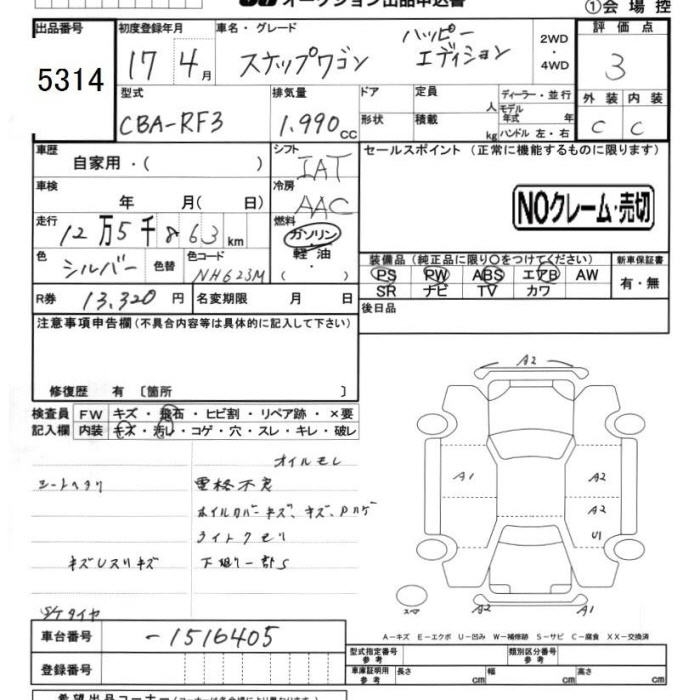 オークション出品申込書
①会場控
出品番号 初度登録年月 車名・グレード 2WD・4WD 評価点
5314 17 4月 ステップワゴン ハッピーエディション 3
型式 排気量 ドア 定員 人 ディーラー・並行 外装 内装
CBA-RF3 1.990cc 形状 積載 kg モデル年式 年 ハンドル 左・右 C C
車歴 自家用・( ) シフト IAT セールスポイント (正常に機能するものに限ります)
車検 年 月( 日) 冷房 AAC
NOクレーム・売切
走行 12万5千863km 燃料 ガソリン・軽油・( )
色 シルバー 色替 色コード NH623M
装備品 (純正品に限り○をつけてください) 新車保証書
PS PW ABS エアB AW 有・無
SR ナビ TV カワ
R券 13.320円 名変期限 月 日 後日品
注意事項申告欄 (不具合内容等は具体的に記入して下さい)
修復歴 有 〔箇所 〕
検査員 FW キズ・飛石・ヒビ割・リペア跡・×要
記入欄 内装 キズ・汚レ・コゲ・穴・スレ・キレ・破レ
オイルモレ
シートヘタリ 電格不良
ホイルカバーキズ、キズ、Pハゲ
ライトクモリ
キズUスリキズ 下廻リ一部S
S/Tタイヤ
A2
A1 A2
A2
U1
スペア A2 A1
A-キズ E-エクボ U-凹み W-補修跡 S-サビ C-腐食 XX-交換済
車台番号 -1516405
登録番号
型式指定番号 参考 類別区分番号 参考
車庫証明用 参考 長さ cm 幅 cm 高さ cm
希望出品コーナー